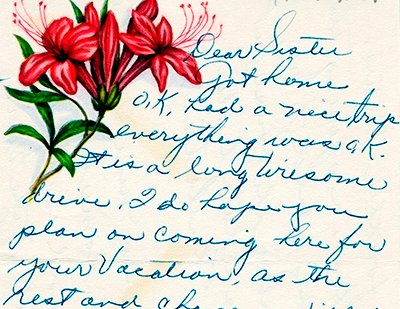 Dear Sister
Got home
O.K. had a nice trip
everything was ok.
It is a long tiresome
drive. I do hope you
plan on coming here for
your Vacation, as the
rest and